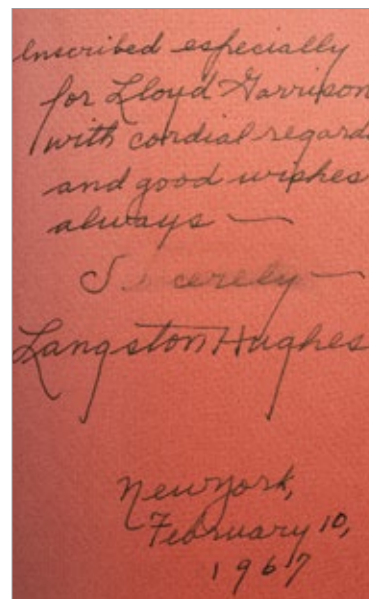 Inscribed especially
for Lloyd Garrison
with cordial regards
and good wishes
always —
Sincerely —
Langston Hughes
New York,
February 10,
1967